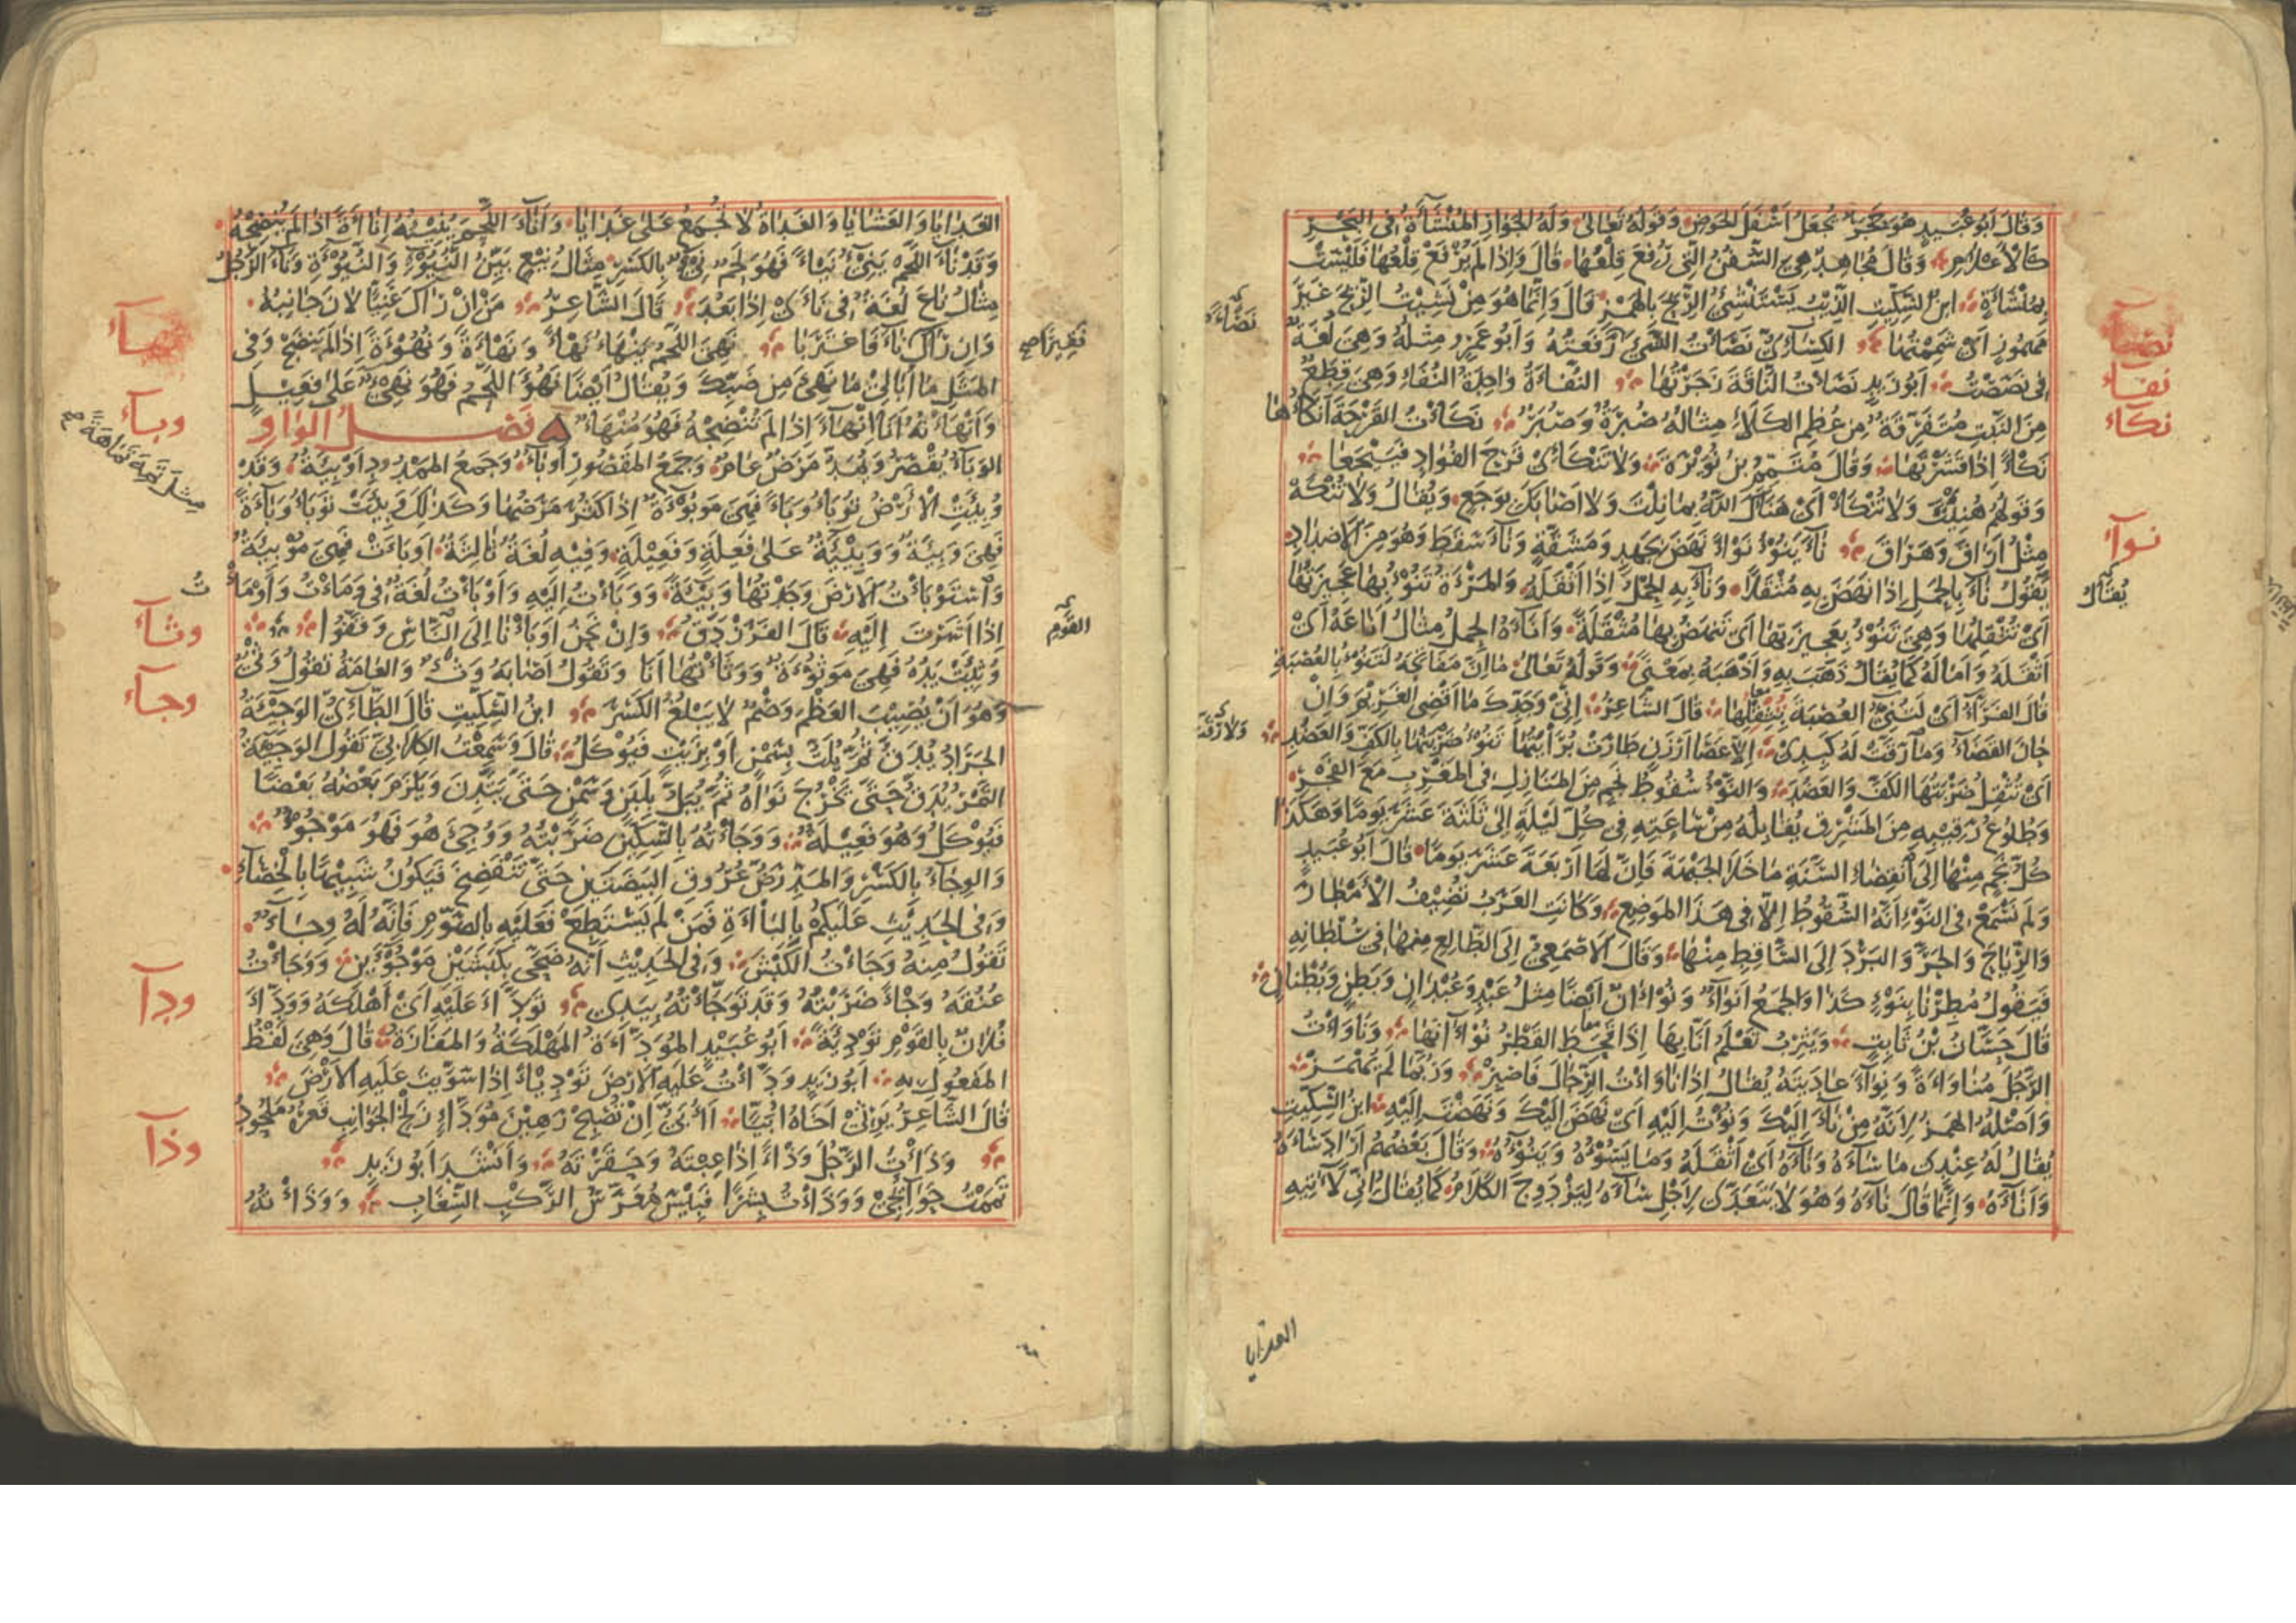 وَقَالَ أَبُو عُبَيْدٍ هُوَ حَجَرٌ يُجْعَلُ أَسْفَلَ الحَوْضِ وَقَوْلُهُ تَعَالَى وَلَهُ الجَوَارِ المُنْشَآتُ فِى البَحْرِ
كَالأَعْلَامِ وَقَالَ مُجَاهِدٌ هِىَ السُّفُنُ الَّتِى رُفِعَ قِلْعُهَا قَالَ وَإِذَا لَمْ يُرْفَعْ قِلْعُهَا فَلَيْسَتْ
بِمُنْشَأَةٍ ابنُ السِّكِّيتِ الذِّئْبُ يَسْتَنْشِئُ الرِّيحَ بِالهَمْزِ قَالَ وَإِنَّمَا هُوَ مِنْ نَشِيتُ الرِّيحَ غَيْرَ
مَهْمُوزٍ أَىْ شَمِمْتُهَا الكِسَائِىُّ نَصَأْتُ الشَّىْءَ رَفَعْتُهُ وَأَبُو عَمْرٍو مِثْلَهُ وَهِىَ لُغَةٌ
فِى نَصَصْتُ أَبُو زَيْدٍ نَصَأْتُ النَّاقَةَ زَجَرْتُهَا النُّفْأَةُ وَاحِدَةُ النُّفَإِ وَهِىَ قِطَعٌ
مِنَ النَّبْتِ مُتَفَرِّقَةٌ مِنْ عُظْمِ الكَلَأِ مِثَالُهُ صُبْرَةٌ وَصُبَرٌ نَكَأْتُ القَرْحَةَ أَنْكَأُهَا
نَكْأً إِذَا قَشَرْتَهَا وَقَالَ مُتَمِّمُ بْنُ نُوَيْرَةَ وَلَا تَنْكَئِى قَرْحَ الفُؤَادِ فَيَيْجَعَا
وَقَوْلُهُمْ هُنِئْتَ وَلَا تُنْكَأْ أَىْ هَنَّاكَ اللَّهُ بِمَا نِلْتَ وَلَا أَصَابَكَ بِوَجَعٍ وَيُقَالُ وَلَا تُنْكَهْ
مِثْلُ أَرَاقَ وَهَرَاقَ نَاءَ يَنُوءُ نَوْءًا نَهَضَ بِجَهْدٍ وَمَشَقَّةٍ وَنَاءَ سَقَطَ وَهُوَ مِنَ الأَضْدَادِ
يَقُولُ نَاءَ بِالحِمْلِ إِذَا نَهَضَ بِهِ مُثْقَلًا وَنَاءَ بِهِ الحِمْلُ إِذَا أَثْقَلَهُ وَالمَرْأَةُ تَنُوءُ بِهَا عَجِيزَتُهَا
أَىْ تُثْقِلُهَا وَهِىَ تَنُوءُ بِعَجِيزَتِهَا أَىْ تَنْهَضُ بِهَا مُثْقَلَةً وَأَنَاءَهُ الحِمْلُ مِثَالُ أَنَاعَهُ أَىْ
أَثْقَلَهُ وَأَمَالَهُ كَمَا يُقَالُ ذَهَبَ بِهِ وَأَذْهَبَهُ بِمَعْنًى وَقَوْلُهُ تَعَالَى مَا إِنَّ مَفَاتِحَهُ لَتَنُوءُ بِالعُصْبَةِ
قَالَ الفَرَّاءُ أَىْ لَتُنِئُ العُصْبَةَ تُثْقِلُهَا قَالَ الشَّاعِرُ إِنِّى وَجَدِّكَ مَا أَقْضِى الغَرِيمَ وَإِنْ
حَانَ القَضَاءُ وَمَا رَقَّتْ لَهُ كَبِدِى إِلَّا عَصَا أَرْزَنٍ طَارَتْ بُرَايَتُهَا تَنُوءُ ضَرْبَتُهَا بِالكَفِّ وَالعَضُدِ
أَىْ تُثْقِلُ ضَرْبَتُهَا الكَفَّ وَالعَضُدَ وَالنَّوْءُ سُقُوطُ نَجْمٍ مِنَ المَنَازِلِ فِى المَغْرِبِ مَعَ الفَجْرِ
وَطُلُوعُ رَقِيبِهِ مِنَ المَشْرِقِ يُقَابِلُهُ مِنْ سَاعَتِهِ فِى كُلِّ لَيْلَةٍ إِلَى ثَلَثَةَ عَشَرَ يَوْمًا وَهَكَذَا
كُلُّ نَجْمٍ مِنْهَا إِلَى انْقِضَاءِ السَّنَةِ مَا خَلَا الجَبْهَةَ فَإِنَّ لَهَا أَرْبَعَةَ عَشَرَ يَوْمًا قَالَ أَبُو عُبَيْدٍ
وَلَمْ نَسْمَعْ فِى النَّوْءِ أَنَّهُ السُّقُوطُ إِلَّا فِى هَذَا المَوْضِعِ وَكَانَتِ العَرَبُ تُضِيفُ الأَمْطَارَ
وَالرِّيَاحَ وَالحَرَّ وَالبَرْدَ إِلَى السَّاقِطِ مِنْهَا وَقَالَ الأَصْمَعِىُّ إِلَى الطَّالِعِ مِنْهَا فِى سُلْطَانِهِ
فَيَقُولُ مُطِرْنَا بِنَوْءِ كَذَا وَالجَمْعُ أَنْوَاءٌ وَنُوآنٌ أَيْضًا مِثْلُ عَبْدٍ وَعُبْدَانٍ وَبَطْنٍ وَبُطْنَانٍ
قَالَ حَسَّانُ بْنُ ثَابِتٍ وَيَثْرِبُ تَعْلَمُ أَنَّا بِهَا إِذَا قَحَطَ القَطْرُ نُوآنُهَا وَنَاوَأْتُ
الرَّجُلَ مُنَاوَأَةً وَنِوَاءً عَادَيْتُهُ يُقَالُ إِذَا نَاوَأْتَ الرِّجَالَ فَاصْبِرْ وَرُبَّمَا لَمْ يُهْمَزْ
وَأَصْلُهُ الهَمْزُ لِأَنَّهُ مِنْ نَاءَ إِلَيْكَ وَنُؤْتُ إِلَيْهِ أَىْ نَهَضَ إِلَيْكَ وَنَهَضْتَ إِلَيْهِ ابنُ السِّكِّيتِ
يُقَالُ لَهُ عِنْدِى مَا سَاءَهُ وَنَاءَهُ أَىْ أَثْقَلَهُ وَمَا يَسُوءُهُ وَيَنُوءُهُ وَقَالَ بَعْضُهُمْ أَرَادَ سَاءَهُ
وَأَنَاءَهُ وَإِنَّمَا قَالَ نَاءَهُ وَهُوَ لَا يَتَعَدَّى لِأَجْلِ سَاءَهُ لِيَزْدَوِجَ الكَلَامُ كَمَا يُقَالُ إِنِّى لَآتِيهِ
نصأ
نفاء
نكاء
نوآ
يقال
ولا رقت
الغدايا
الغَدَايَا وَالعَشَايَا وَالغَدَاةُ لَا تُجْمَعُ عَلَى غَدَايَا وَأَنَاءَ اللَّحْمَ يُنِيئُهُ إِنَاءَةً إِذَا لَمْ يُنْضِجْهُ
وَقَدْ نَاءَ اللَّحْمُ يَنِىءُ نَيْئًا فَهُوَ لَحْمٌ نِىءٌ بِالكَسْرِ مِثَالُ نِيعٍ بَيِّنُ النُّيُوءِ وَالنُّيُوءَةِ وَنَاءَ الرَّجُلُ
مِثَالُ نَاعَ لُغَةٌ فِى نَأَى إِذَا بَعُدَ قَالَ الشَّاعِرُ مَنْ إِنْ رَآكَ غَنِيًّا لَانَ جَانِبُهُ
وَإِنْ رَآكَ نَاءَ فَاغْتَرَبَا نَهِئَ اللَّحْمُ يَنْهَأُ نَهْأً وَنَهَاءَةً وَنُهُوءَةً إِذَا لَمْ يَنْضَجْ وَفِى
المَثَلِ مَا أُبَالِى مَا نَهِئَ مِنْ ضَبِّكَ وَيُقَالُ أَيْضًا نَهُؤَ اللَّحْمُ فَهُوَ نَهِىءٌ عَلَى فَعِيلٍ
وَأَنْهَأْتُهُ أَنَا إِنْهَاءً إِذَا لَمْ تُنْضِجْهُ فَهُوَ مُنْهَأٌ فَصْلُ الوَاوِ
الوَبَأُ يُقْصَرُ وَيُمَدُّ مَرَضٌ عَامٌّ وَجَمْعُ المَقْصُورِ أَوْبَاءٌ وَجَمْعُ المَمْدُودِ أَوْبِئَةٌ وَقَدْ
وَبِئَتِ الأَرْضُ تَوْبَأُ وَبَأً فَهِىَ مَوْبُوءَةٌ إِذَا كَثُرَ مَرَضُهَا وَكَذَلِكَ وَبِئَتْ تَوْبَأُ وَبَاءَةً
فَهِىَ وَبِئَةٌ وَوَبِيئَةٌ عَلَى فَعِلَةٍ وَفَعِيلَةٍ وَفِيهِ لُغَةٌ ثَالِثَةٌ أَوْبَأَتْ فَهِىَ مُوبِئَةٌ
وَاسْتَوْبَأْتُ الأَرْضَ وَجَدْتُهَا وَبِيئَةً وَوَبَأْتُ إِلَيْهِ وَأَوْبَأْتُ لُغَةٌ فِى وَمَأْتُ وَأَوْمَأْتُ
إِذَا أَشَرْتَ إِلَيْهِ قَالَ الفَرَزْدَقُ وَإِنْ نَحْنُ أَوْبَأْنَا إِلَى النَّاسِ وَقَّفُوا
وُثِئَتْ يَدُهُ فَهِىَ مَوْثُوءَةٌ وَوَثَأْتُهَا أَنَا وَتَقُولُ أَصَابَهُ وَثْءٌ وَالعَامَّةُ تَقُولُ وَثْىٌ
وَهُوَ أَنْ يُصِيبَ العَظْمَ وَصْمٌ لَا يَبْلُغُ الكَسْرَ ابنُ السِّكِّيتِ قَالَ الطَّائِىُّ الوَجِيئَةُ
الجَرَادُ يُدَقُّ ثُمَّ يُلَتُّ بِسَمْنٍ أَوْ بِزَيْتٍ فَيُؤْكَلُ قَالَ وَسَمِعْتُ الكِلَابِىَّ تَقُولُ الوَجِيئَةُ
التَّمْرُ يُدَقُّ حَتَّى يَخْرُجَ نَوَاهُ ثُمَّ يُبَلُّ بِلَبَنٍ وَسَمْنٍ حَتَّى يَتَّدِنَ وَيَلْزَمَ بَعْضُهُ بَعْضًا
فَيُؤْكَلُ وَهُوَ فَعِيلَةٌ وَوَجَأْتُهُ بِالسِّكِّينِ ضَرَبْتُهُ وَوُجِئَ هُوَ فَهُوَ مَوْجُوءٌ
وَالوِجَاءُ بِالكَسْرِ وَالمَدِّ رَضُّ عُرُوقِ البَيْضَتَيْنِ حَتَّى تَنْفَضِخَ فَيَكُونُ شَبِيهًا بِالخِصَاءِ
وَفِى الحَدِيثِ عَلَيْكُمْ بِالبَاءَةِ فَمَنْ لَمْ يَسْتَطِعْ فَعَلَيْهِ بِالصَّوْمِ فَإِنَّهُ لَهُ وِجَاءٌ
تَقُولُ مِنْهُ وَجَأْتُ الكَبْشَ وَفِى الحَدِيثِ أَنَّهُ ضَحَّى بِكَبْشَيْنِ مَوْجُوءَيْنِ وَوَجَأْتُ
عُنُقَهُ وَجْأً ضَرَبْتُهُ وَقَدْ تَوَجَّأْتُهُ بِيَدِى تَوَدَّأَ عَلَيْهِ أَىْ أَهْلَكَهُ وَوَدَّأَ
فُلَانٌ بِالقَوْمِ تَوْدِئَةً أَبُو عُبَيْدٍ المُوَدَّأَةُ المَهْلَكَةُ وَالمَفَازَةُ قَالَ وَهِىَ لَفْظُ
المَفْعُولِ بِهِ أَبُو زَيْدٍ وَدَّأْتُ عَلَيْهِ الأَرْضَ تَوْدِيئًا إِذَا سَوَّيْتَ عَلَيْهِ الأَرْضَ
قَالَ الشَّاعِرُ يَرْثِى أَخَاهُ أُبَيًّا أَأُبَىُّ إِنْ تُصْبِحْ رَهِينَ مُوَدَّإٍ زَلْخِ الجَوَانِبِ قَعْرُهُ مَلْحُودُ
وَذَأْتُ الرَّجُلَ وَذْأً إِذَا عِبْتَهُ وَحَقَرْتَهُ وَأَنْشَدَ أَبُو زَيْدٍ
ثَمَمْتُ حَوَائِجِى وَوَذَأْتُ بِشْرًا فَبِئْسَ مُعَرَّسُ الرَّكْبِ السِّغَابِ وَوَذَأْتُهُ
وبآء
وثآء
وجآء
ودآ
وذآ
القوم